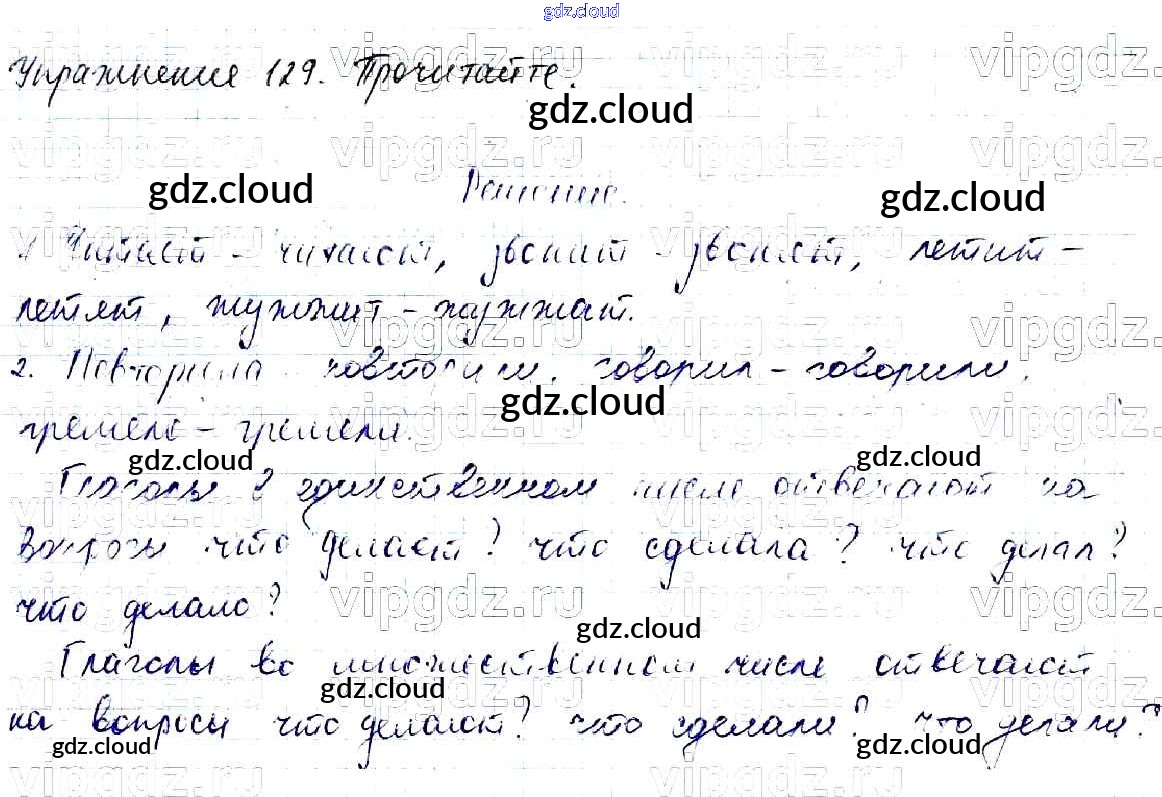 gdz.cloud
Упражнение 129. Прочитайте.
gdz.cloud
vipgdz.ru vipgdz.ru vipgdz.ru vipgdz.
gdz.cloud Решение. gdz.cloud
1. Читает - читают, звонит - звонят, летит -
летят, жужжит - жужжат.
2. Повторила - повторили, говорил - говорили,
gdz.cloud
гремело - гремели.
gdz.cloud gdz.cloud
Глаголы в единственном числе отвечают на
вопросы что делает? что сделала? что делал?
что делало?
gdz.cloud
Глаголы во множественном числе отвечают
gdz.cloud
на вопросы что делают? что сделали? что делали?
gdz.cloud gdz.cloud